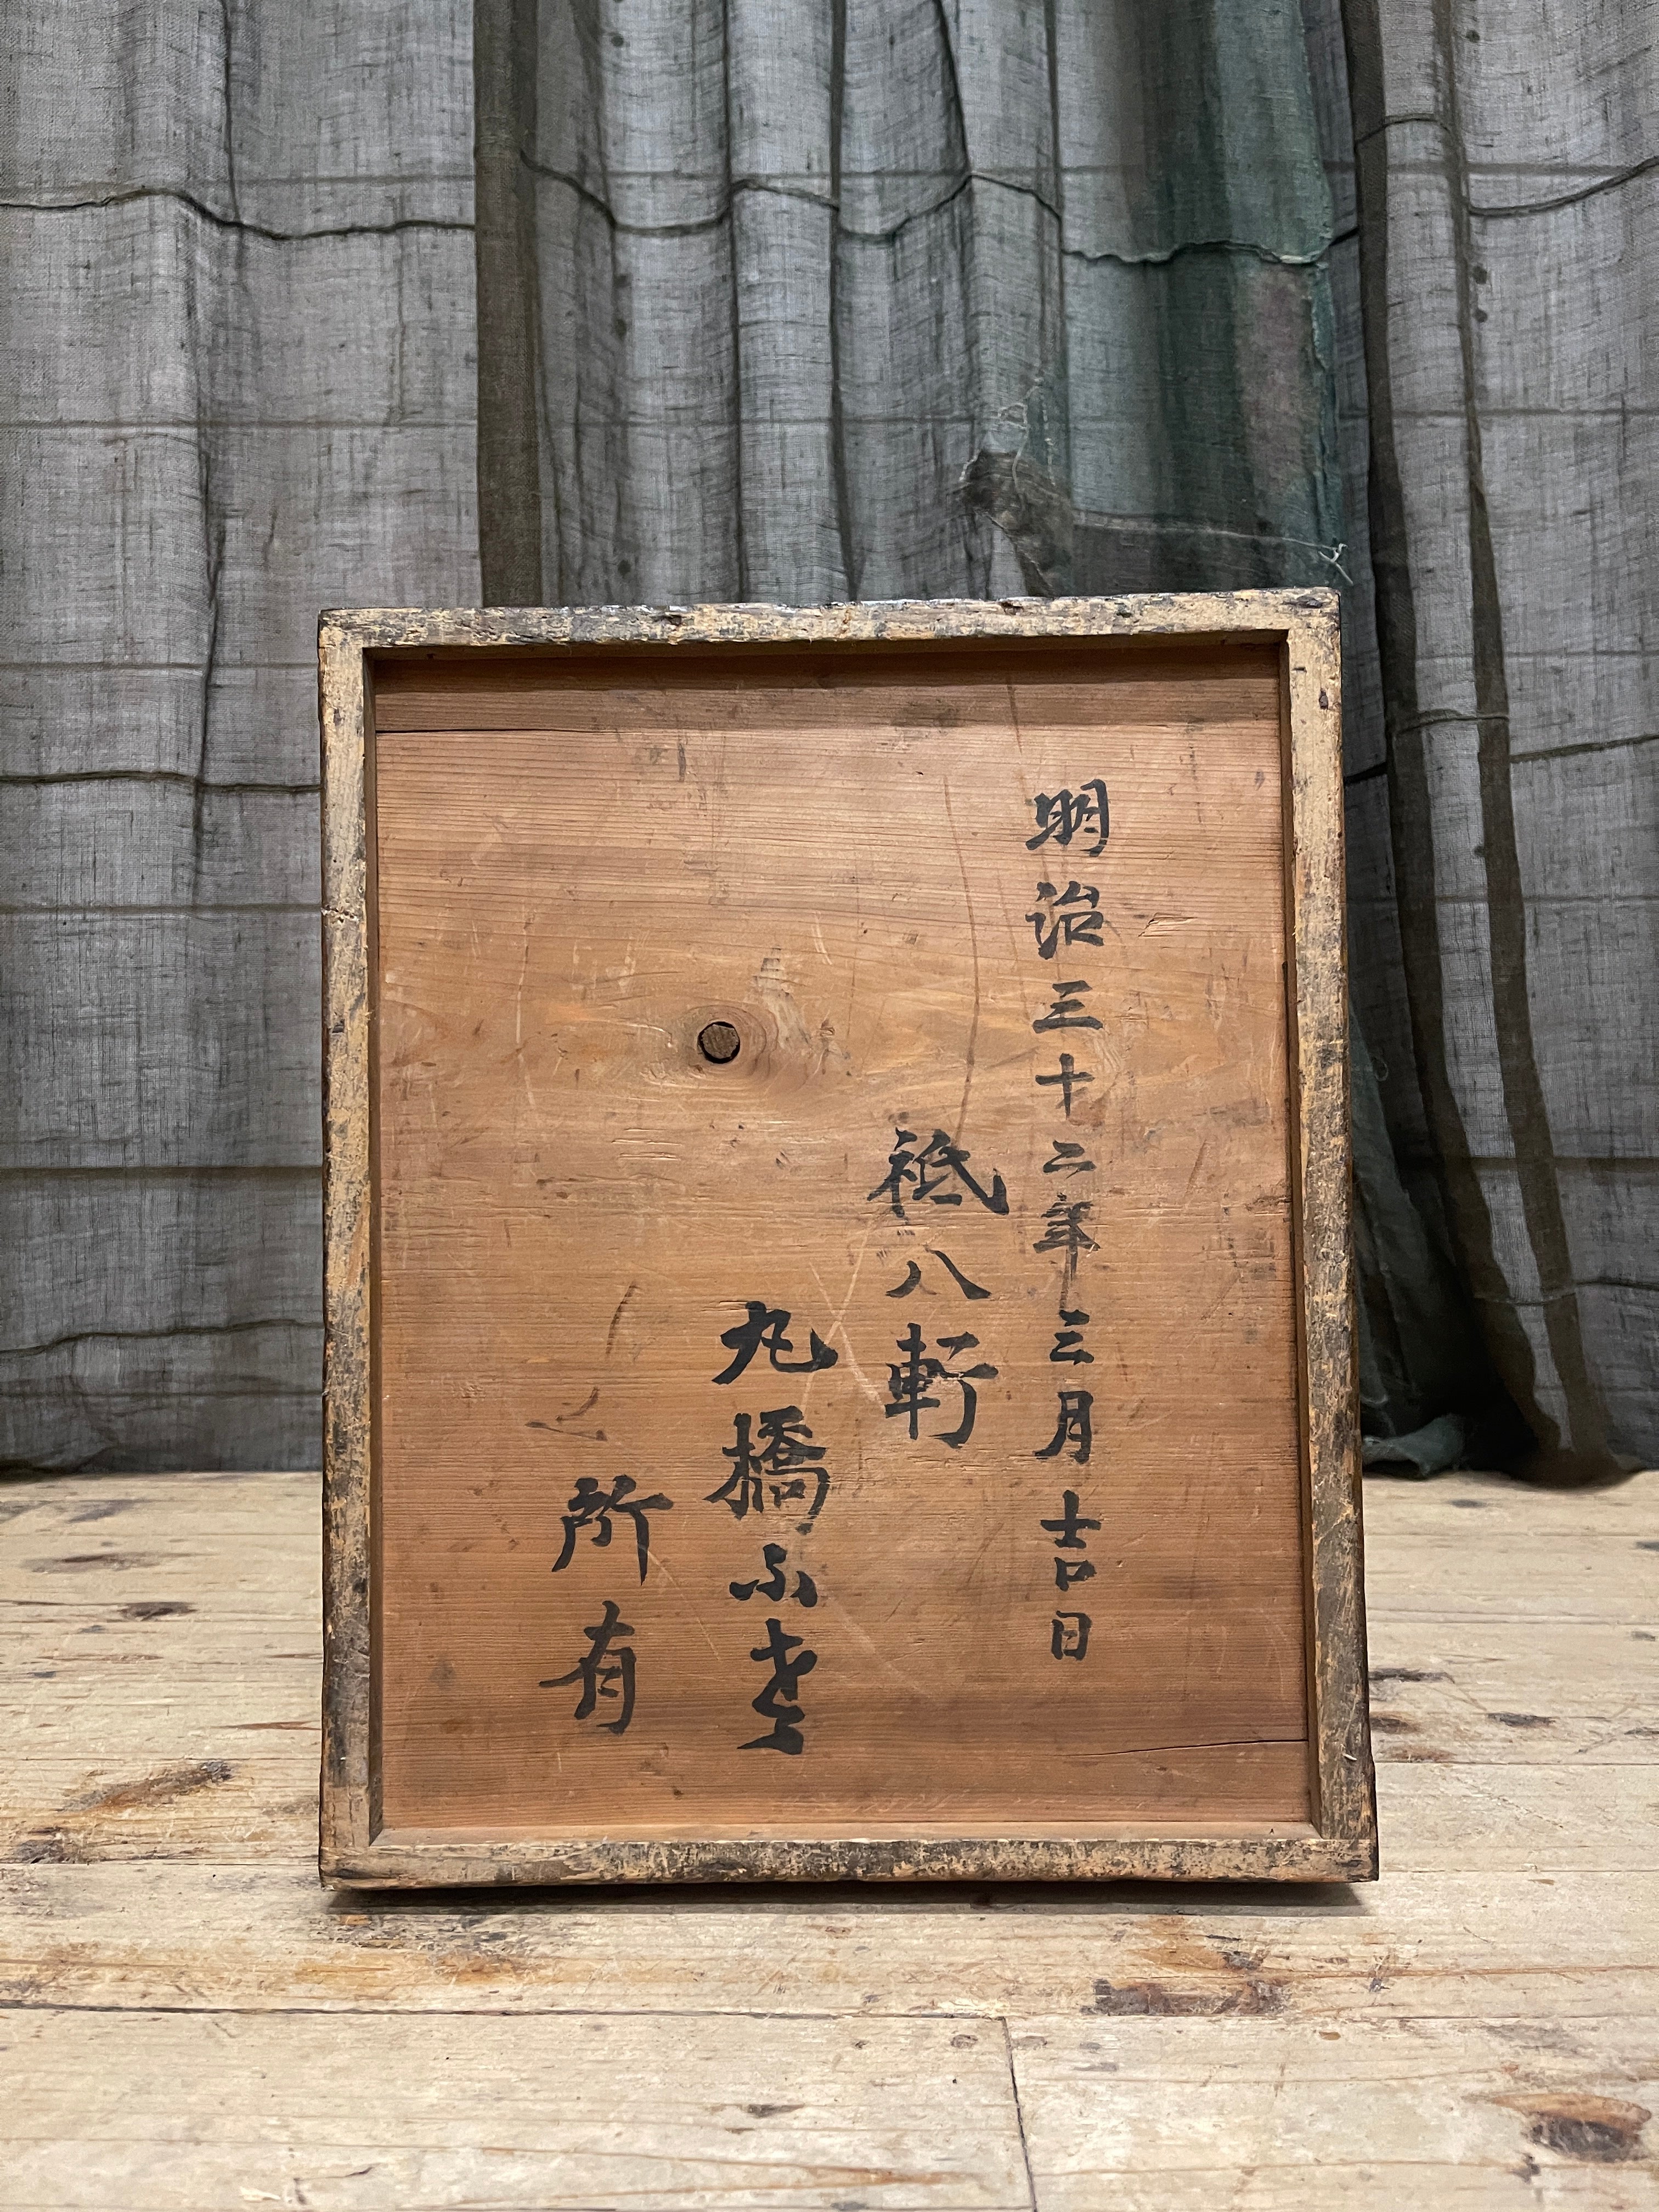 明治三十二年三月吉日
祗八軒
丸橋ふさ
所有